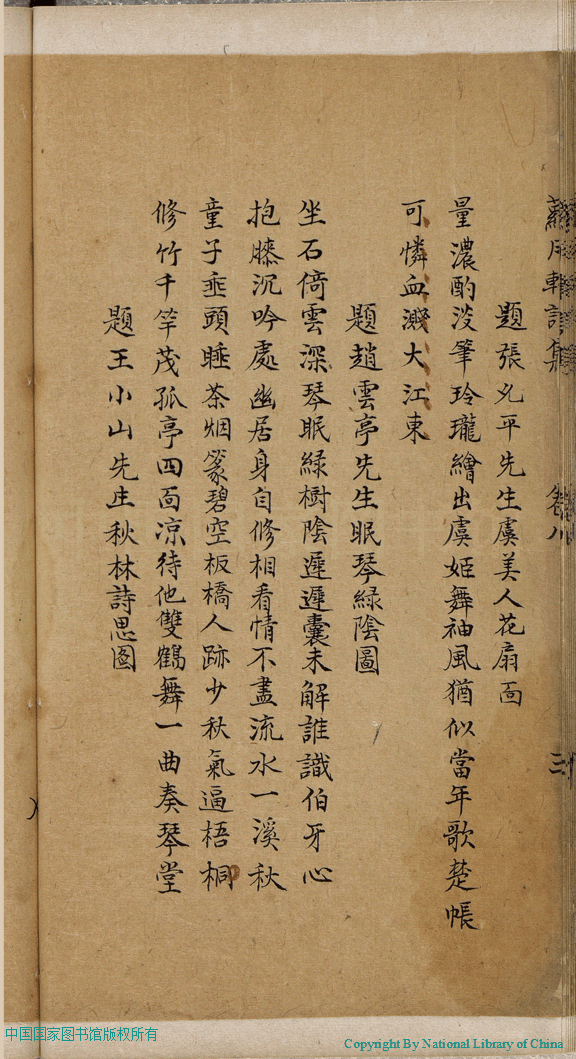 軒詩集
卷八
三
題張夕平先生虞美人花扇面
量濃酌淡筆玲瓏繪出虞姬舞袖風猶似當年歌楚帳
可憐血濺大江東
題趙雲亭先生眠琴綠陰圖
坐石倚雲深琴眠綠樹陰遲遲囊未解誰識伯牙心
抱膝沉吟處幽居身自修相看情不盡流水一溪秋
童子垂頭睡茶烟篆碧空板橋人跡少秋氣逼梧桐
修竹千竿茂孤亭四面凉待他雙鶴舞一曲奏琴堂
題王小山先生秋林詩思图
中国国家图书馆版权所有
Copyright By National Library of China